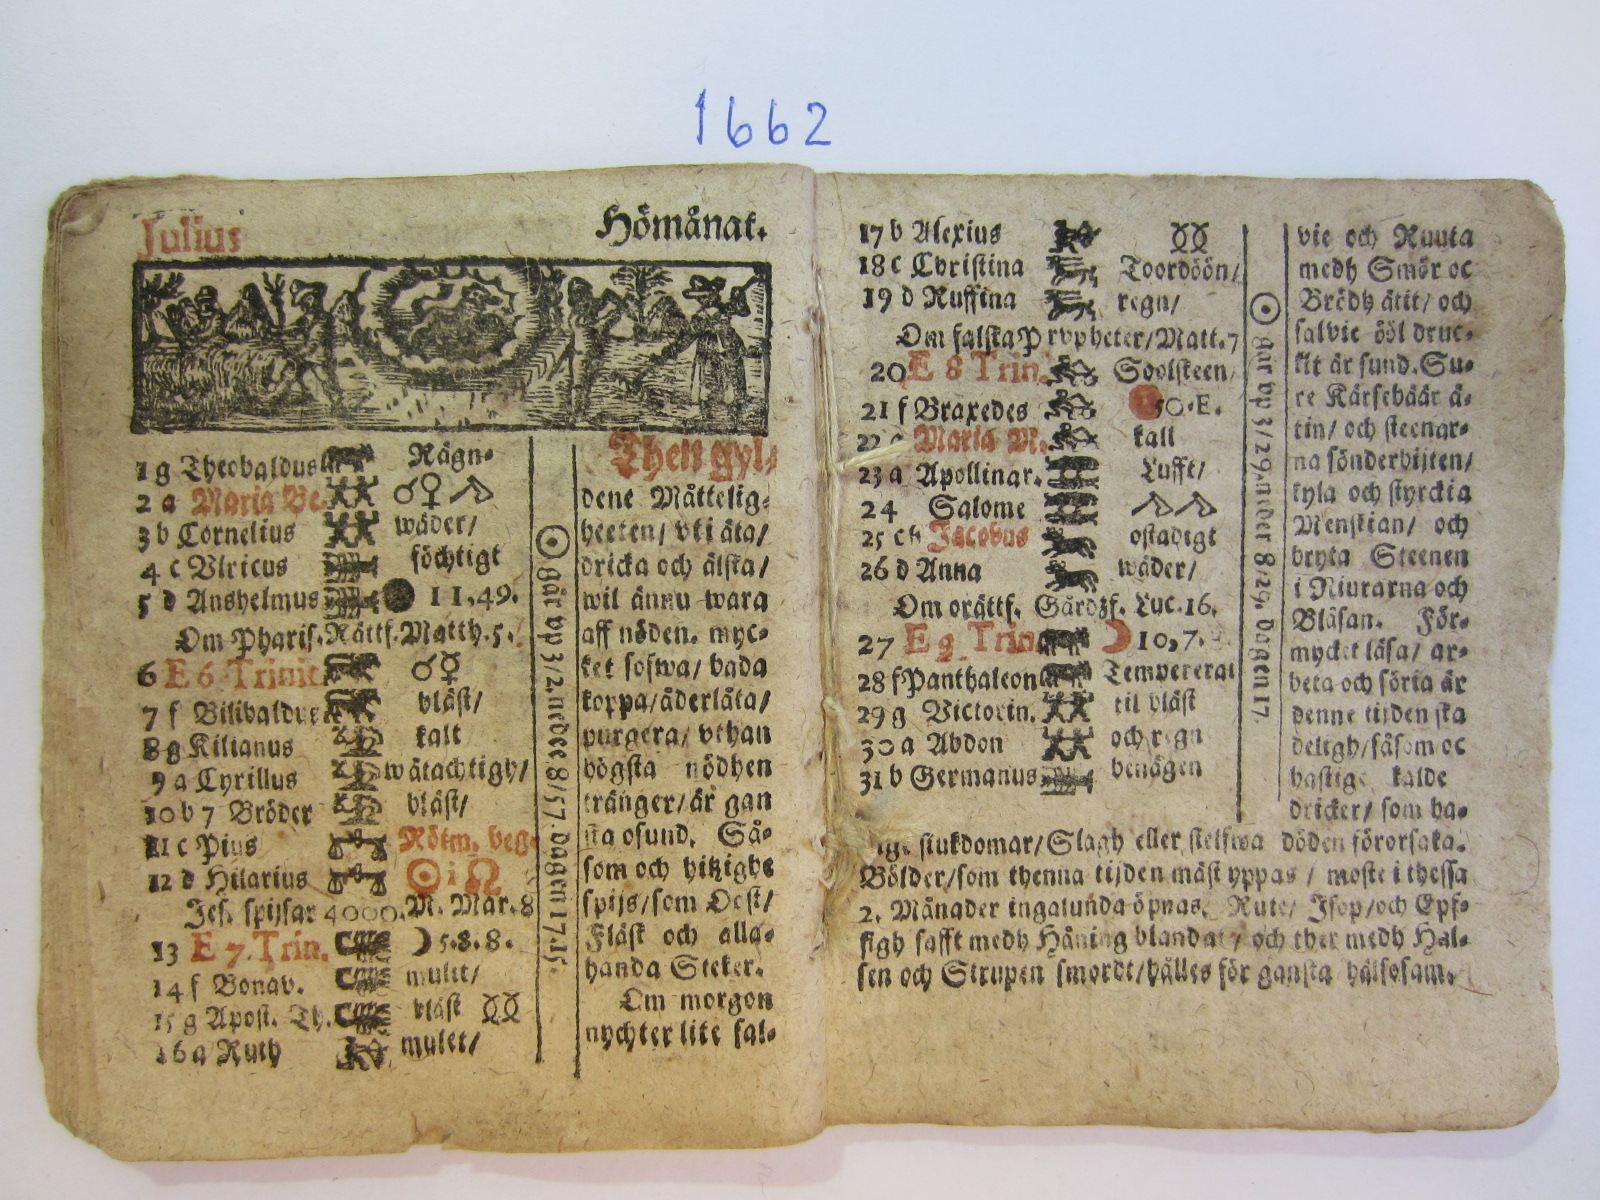 1662
Julius
Hömånat.
1 g Theobaldus Rägn-
2 a Maria Be. ♂♀
3 b Cornelius wäder/
4 c Vlricus föchtigt
5 d Anshelmus ● 11.49.
Om Pharis. Rättf. Matth. 5.
6 E 6 Trinit. ♂☿
7 f Bilibaldus bläst/
8 g Kilianus kalt
9 a Cyrillus wätachtigh/
10 b 7 Bröder bläst/
11 c Pius Rötm. beg.
12 d Hilarius ☉ i ♌
Jes. spijsar 4000. M. Mar. 8
13 E 7. Trin. ☽ 5.8.8.
14 f Bonav. mulet/
15 g Apost. Th. bläst
16 a Ruth mulet/
☉ går vp 3/2. neder 8/57. Dagen 17.15.
Then gyl-
dene Måttelig-
heeten/ vti äta/
dricka och älska/
wil ännu wara
aff nöden. myc-
ket sofwa/ bada
koppa/ åderläta/
purgera/ vthan
högsta nödhen
tränger/ är gan
ska osund. Så-
som och hitzighe
spijs/ som Oost/
Fläsk och alla-
handa Steker.
Om morgon
nychter lite sal-
17 b Alexius
18 c Christina Toordöön/
19 d Ruffina regn/
Om falska Propheter/ Matt. 7
20 E 8 Trin. Soolskeen/
21 f Braxedes 50. E.
22 g Maria M. kall
23 a Apollinar. Lufft/
24 Salome
25 c Jacobus ostadigt
26 d Anna wäder/
Om orättf. Gårdzf. Luc. 16.
27 E 9 Trin. ☽ 10,7.
28 f Panthaleon Tempererat
29 g Victorin. til bläst
30 a Abdon och regn
31 b Germanus benägen
☉ går vp 3/29. neder 8/29. Dagen 17.
vie och Ruuta
medh Smör oc
Brödh ätit/ och
salvie ööl druc-
kit är sund. Su-
re Kärsebäär ä-
tin/ och steenar-
na sönderbijten/
kyla och styrckia
Menskian/ och
bryta Steenen
i Niurarna och
Blåsan. För-
mycket läsa/ ar-
beta och söria är
denne tijden ska
deligh/ såsom oc
hastige kalde
dricker/ som ha-
stige siukdomar/ Slagh eller sielfwa döden förorsaka.
Bölder/ som thenna tijden mäst yppas/ moste i thessa
2. Månader ingalunda öpnas. Rute/ Isop/ och Epf-
figh safft medh Håning blandat/ och ther medh Hal-
sen och Strupen smordt/ hålles för ganska hälsosam.